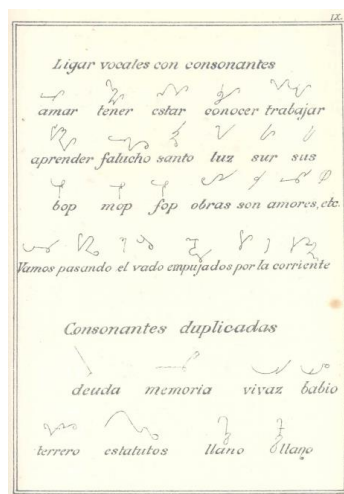 IX.
Ligar vocales con consonantes
amar tener estar conocer trabajar
aprender falucho santo luz sur sus
bop mop fop obras son amores, etc.
Vamos pasando el vado empujados por la corriente
Consonantes duplicadas
deuda memoria vivaz babio
terrero estatutos llano ollano